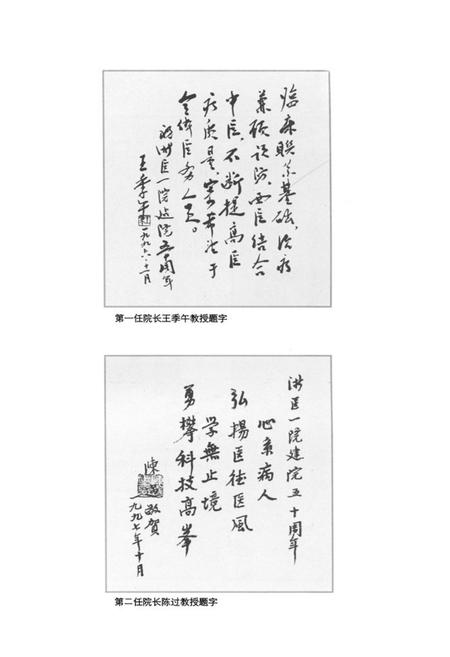 临床联系基础，治病
兼顾预防，西医结合
中医，不断提高医
疗质量，寄希望于
全体医务人员。
祝浙医一院建院五十周年
王季午
一九九六·十一月
第一任院长王季午教授题字
浙医一院建院五十周年
心系病人
弘揚医德医風
学無止境
勇攀科技高峯
陳过 敬賀
一九九七年十月
第二任院长陈过教授题字